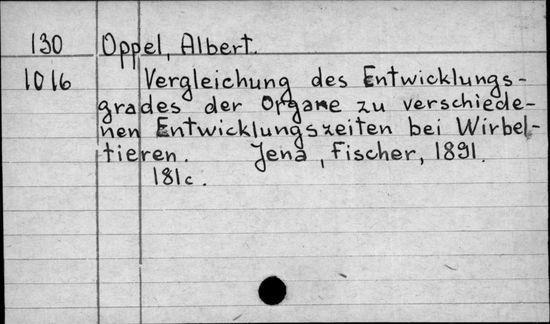 130 Oppel, Albert.
1016 Vergleichung des Entwicklungs-
grades der Organe zu verschiede-
nen Entwicklungszeiten bei Wirbel-
tieren. Jena, Fischer, 1891.
181c.